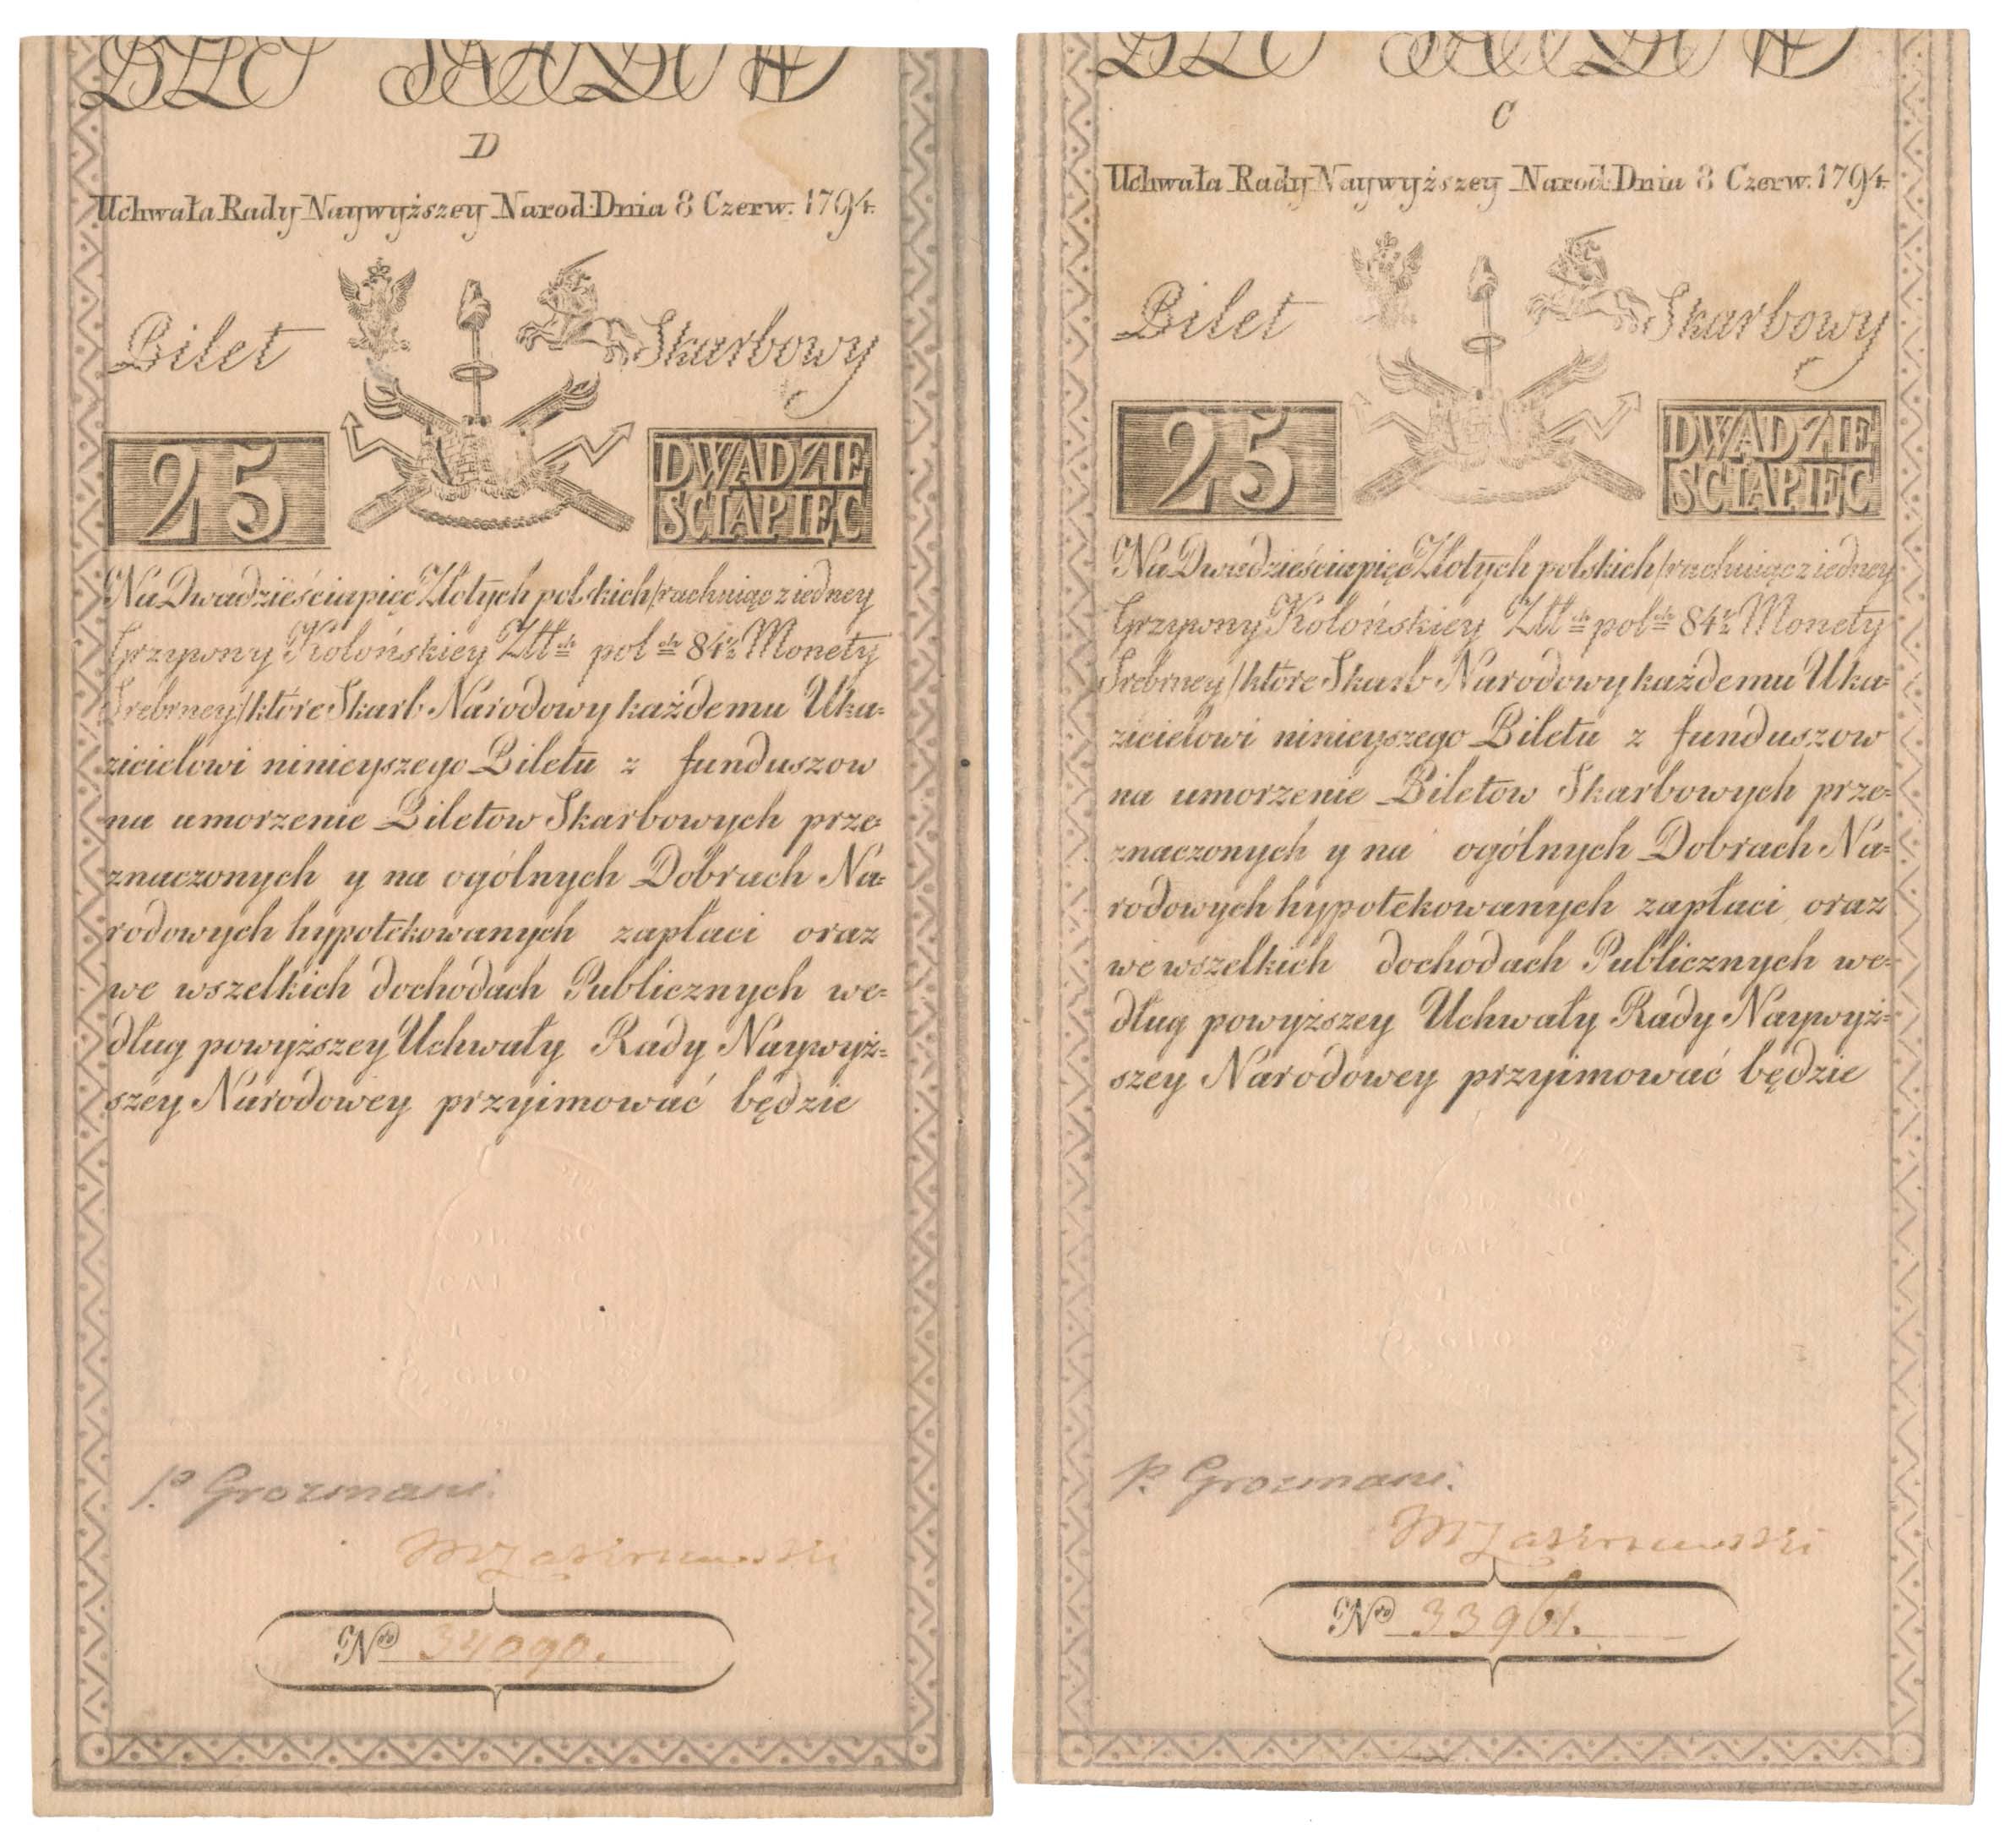 D
Uchwała Rady Naywyższey Narod: Dnia 8 Czerw. 1794.
Bilet Skarbowy
25
DWADZIE
SCIAPIĘC
Na Dwadzieściapięć Złotych polskich /rachuiąc z iedney
Grzywny Kolońskiey Złł ch pol ch 84½ Monety
Srebrney/ które Skarb Narodowy każdemu Uka=
zicielowi ninieyszego Biletu z funduszow
na umorzenie Biletow Skarbowych prze=
znaczonych y na ogólnych Dobrach Na=
rodowych hypotekowanych zapłaci oraz
we wszelkich dochodach Publicznych we=
dług powyższey Uchwały Rady Naywyż=
szey Narodowey przyimować będzie
B S
P. Grozmani.
M Zakrzewski
Nro 34090.
C
Uchwała Rady Naywyższey Narod: Dnia 8 Czerw. 1794.
Bilet Skarbowy
25
DWADZIE
SCIAPIĘC
Na Dwadzieściapięć Złotych polskich /rachuiąc z iedney
Grzywny Kolońskiey Złł ch pol ch 84½ Monety
Srebrney/ które Skarb Narodowy każdemu Uka=
zicielowi ninieyszego Biletu z funduszow
na umorzenie Biletow Skarbowych prze=
znaczonych y na ogólnych Dobrach Na=
rodowych hypotekowanych zapłaci oraz
we wszelkich dochodach Publicznych we=
dług powyższey Uchwały Rady Naywyż=
szey Narodowey przyimować będzie
P. Grozmani.
M Zakrzewski
Nro 33961.